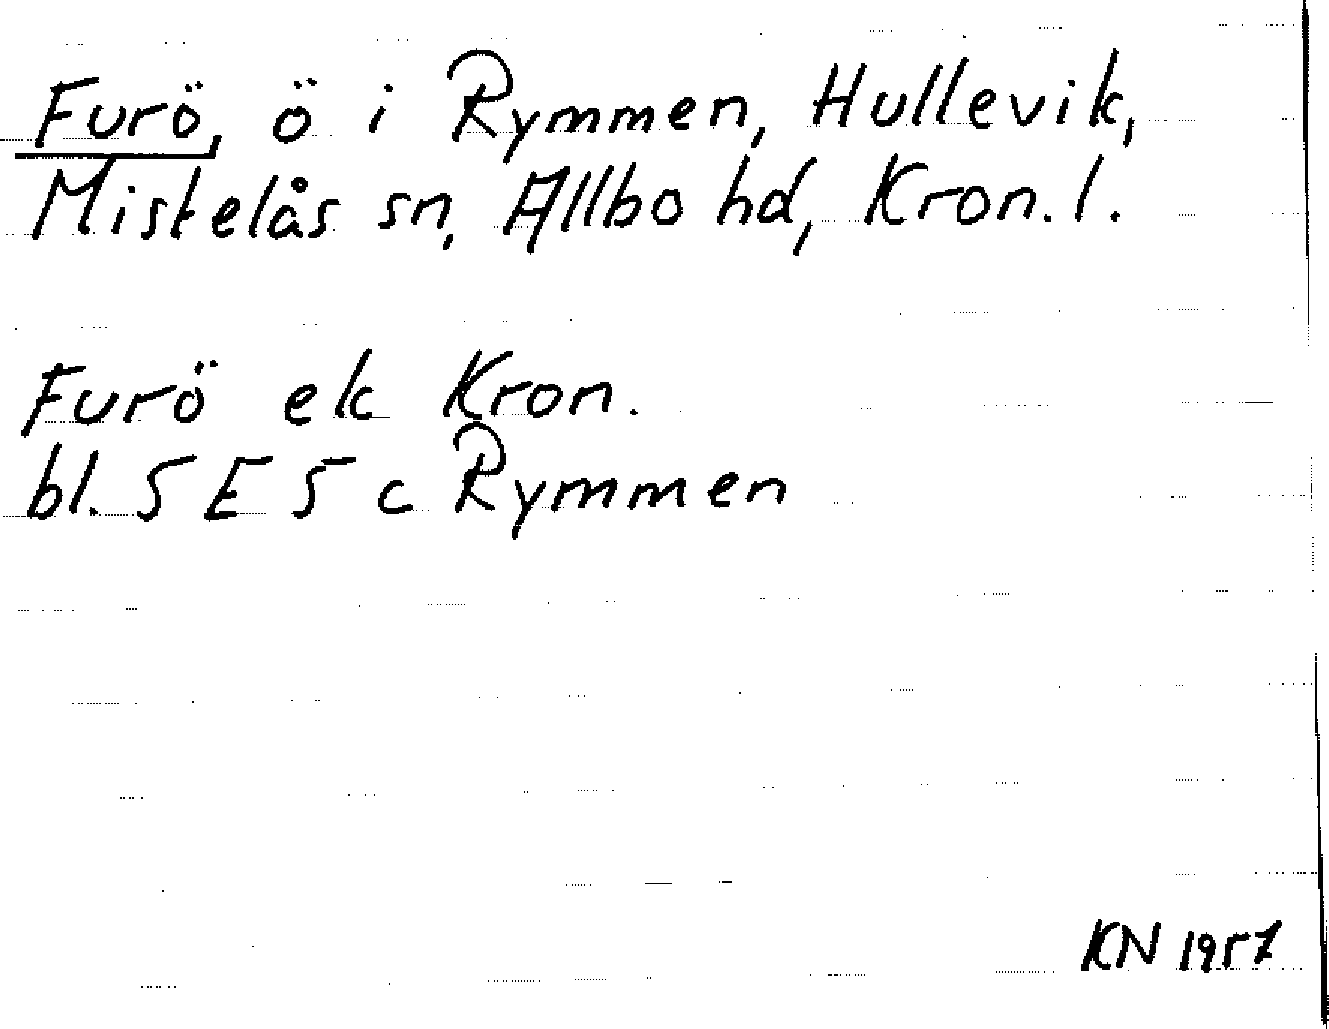 Furö, ö i Rymmen, Hullevik,
Mistelås sn, Allbo hd, Kron. l.
Furö ek Kron.
bl. 5 E 5 c Rymmen
KN 1957